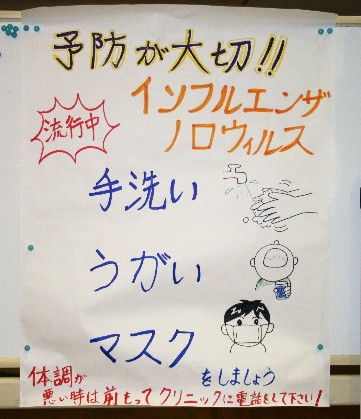 予防が大切!!
流行中
インフルエンザ
ノロウィルス
手洗い
うがい
マスク
をしましょう
体調が
悪い時は前もってクリニックに電話をして下さい!